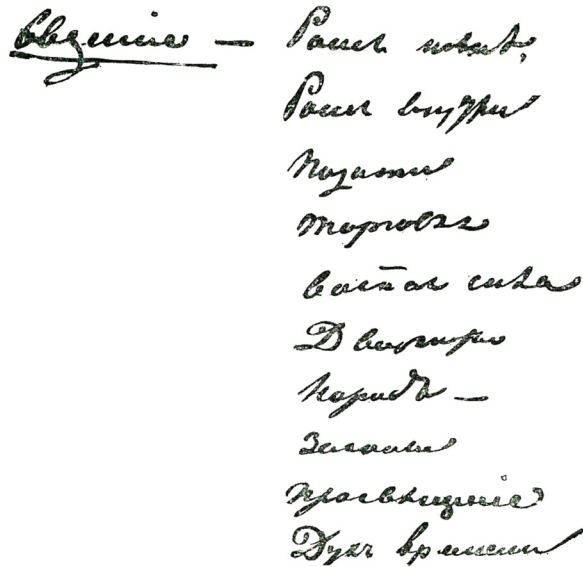 Введеніе — Россія извнѣ,
Россія внутри
Подати
Торговля
Военная сила
Дворянство
Народъ —
Законы
Просвѣщеніе
Духъ времени